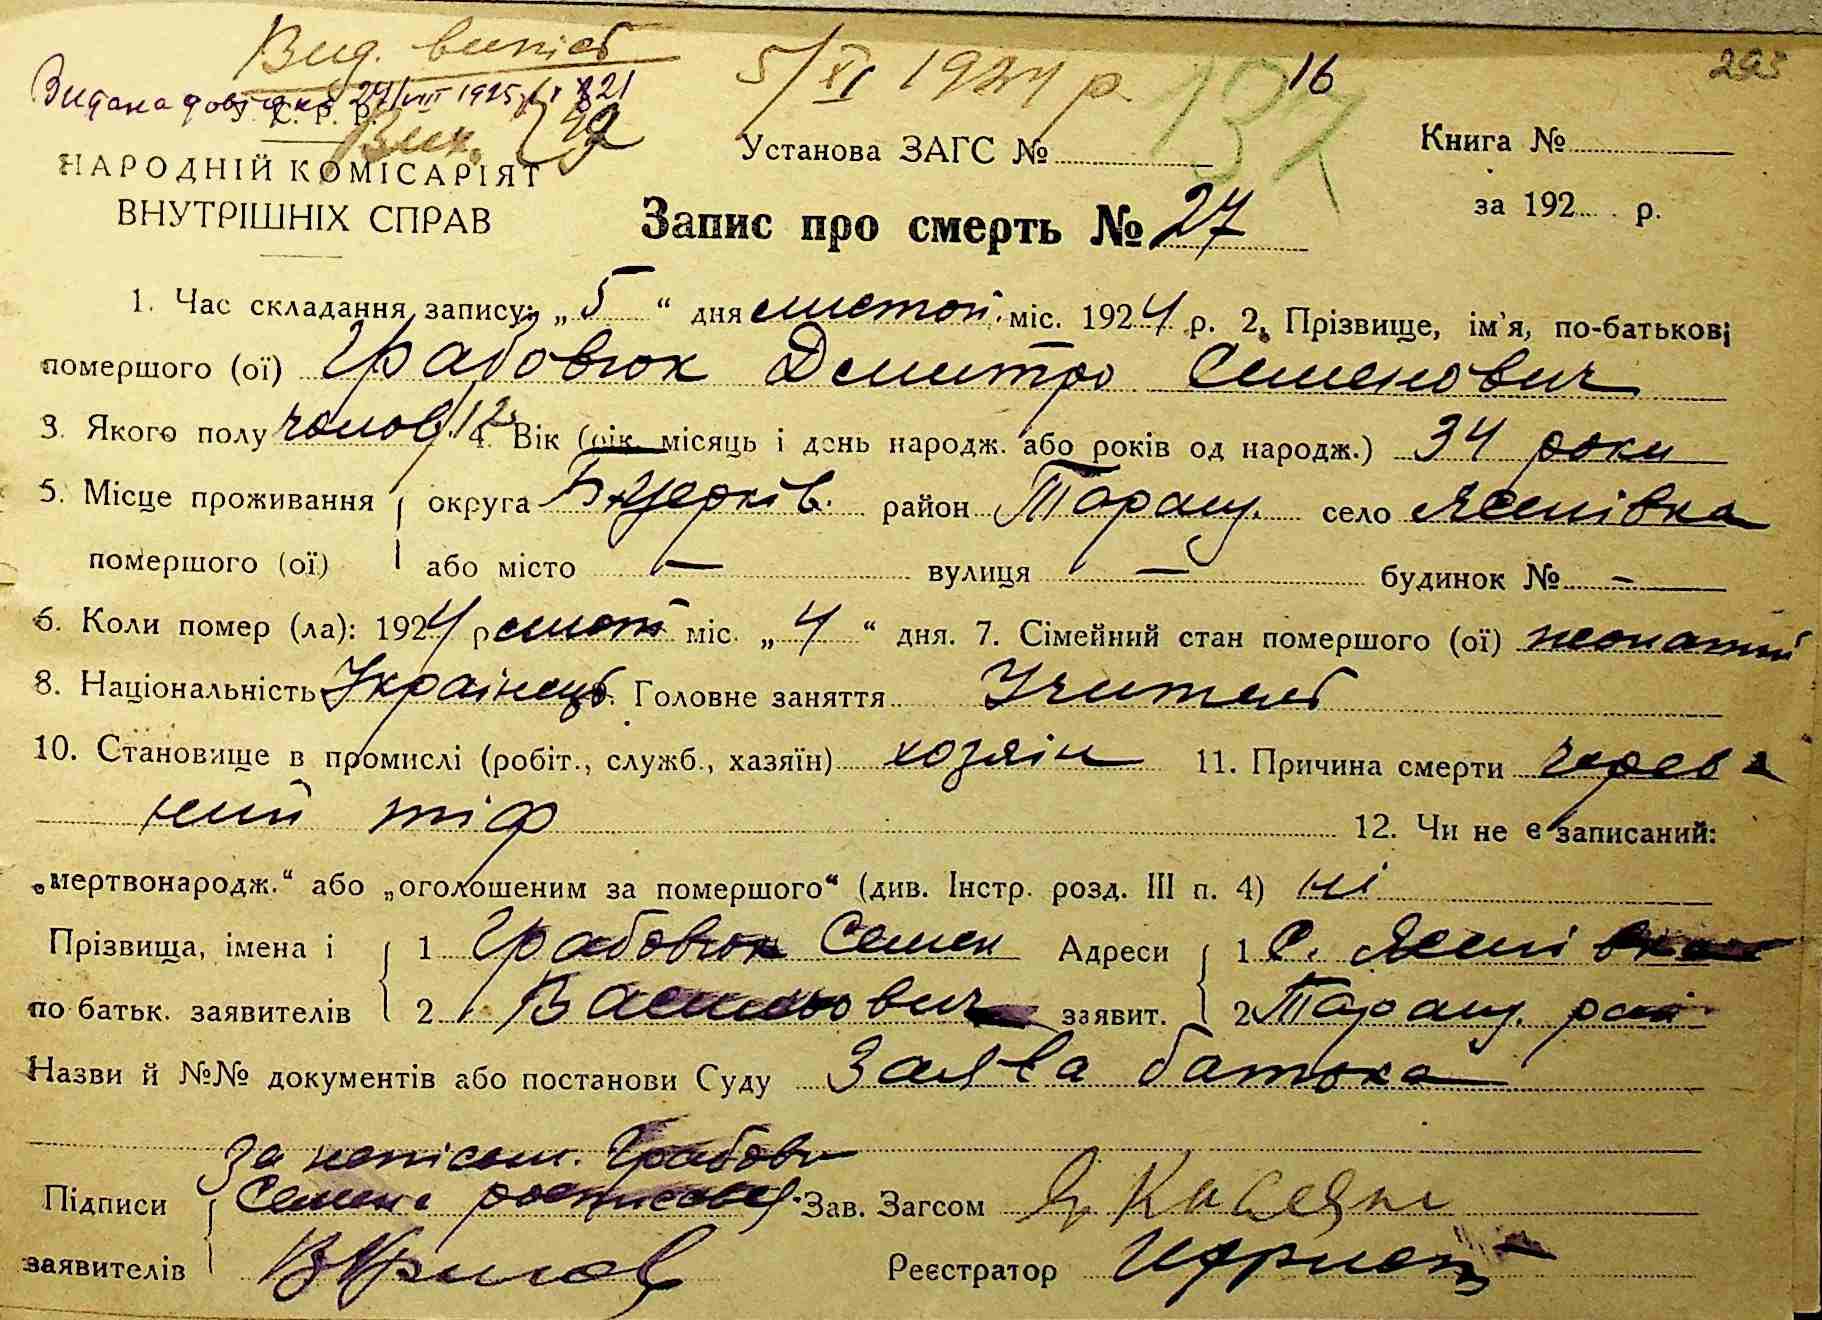 Вид. випис
5/XI 1924 р.
16
293
Видана довідка 27/VIII 1925 р. № 821
У. С. Р. Р.
137
НАРОДНІЙ КОМІСАРІЯТ
ВНУТРІШНІХ СПРАВ
Установа ЗАГС №
Книга №
за 192 р.
Запис про смерть № 27
1. Час складання запису: „5“ дня листоп. міс. 1924 р. 2. Прізвище, ім'я, по-батькові
помершого (ої) Грабовюк Дмитро Семенович
3. Якого полу чолов. 4. Вік (рік місяць і день народж. або років од народж.) 34 роки
5. Місце проживання округа Б-Церків. район Таращ. село Лісипівка
помершого (ої) або місто — вулиця — будинок № –
6. Коли помер (ла): 1924 р. лист міс. „4“ дня. 7. Сімейний стан помершого (ої) жонатий
8. Національність Українець. Головне заняття Учитель
10. Становище в промислі (робіт., служб., хазяїн) хозяін 11. Причина смерти черев
ний тіф 12. Чи не є записаний:
„мертвонародж.“ або „оголошеним за помершого“ (див. Інстр. розд. III п. 4) ні
Прізвища, імена і 1 Грабовюк Семен Адреси 1 С.
по батьк. заявителів 2 Васильович заявит. 2 Таращ. рай
Назви й №№ документів або постанови Суду Заява батька
за непісьм. Грабов
Підписи Семена росписався Зав. Загсом
заявителів Реєстратор